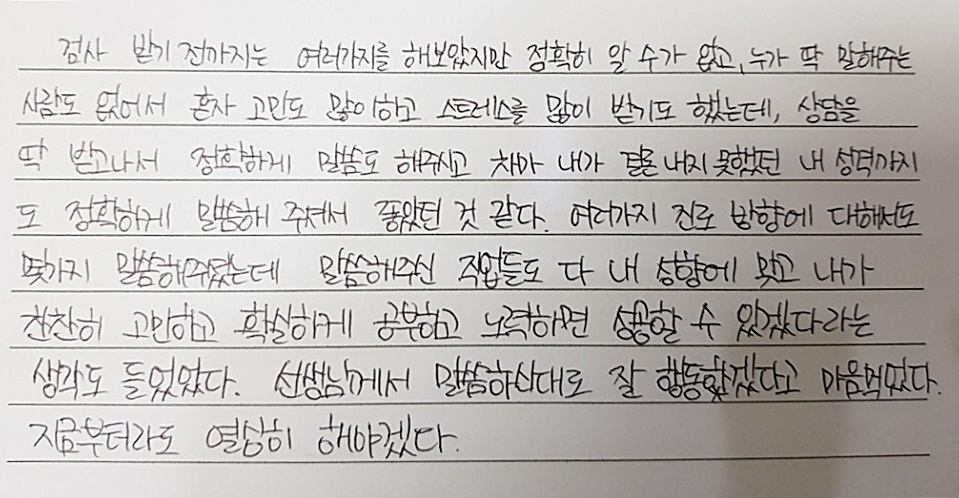 검사 받기 전까지는 여러가지를 해보았지만 정확히 알 수가 없고, 누가 딱 말해주는
사람도 없어서 혼자 고민도 많이하고 스트레스를 많이 받기도 했는데, 상담을
딱 받고나서 정확하게 말씀도 해주시고 차마 내가 결론내지 못했던 내 성격까지
도 정확하게 말씀해 주셔서 좋았던 것 같다. 여러가지 진로 방향에 대해서도
몇가지 말씀해주셨는데 말씀해주신 직업들도 다 내 성향에 맞고 내가
찬찬히 고민하고 확실하게 공부하고 노력하면 성공할 수 있겠다라는
생각도 들었었다. 선생님께서 말씀하신대로 잘 행동해야겠다고 마음먹었다.
지금부터라도 열심히 해야겠다.